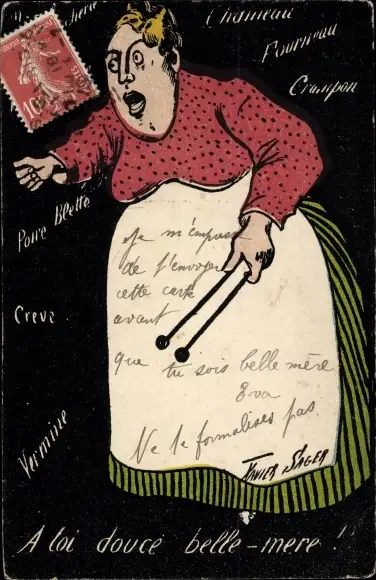 Chameau
Fourneau
Crampon
10
Poire Blette
Creve
Vermine
Je m'empresse
de t'envoyer
cette carte
avant
que tu sois belle mère
Eva
Ne te formalises pas
XAVIER SAGER
A toi douce belle-mere !